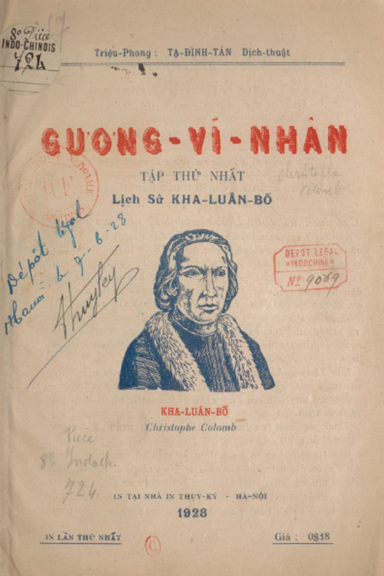 8° Pièce
INDO-CHINOIS
724
Triệu-Phong : TẠ-ĐÌNH-TÁN Dịch-thuật
GƯƠNG-VĨ-NHÂN
TẬP THỨ NHẤT
Lịch Sử KHA-LUÂN-BỐ
christophe
colomb
Dépôt légal
Hanoi le 7-6-28
DEPOT LEGAL
INDOCHINE
Nº 9069
KHA-LUÂN-BỐ
Christophe Colomb
Pièce
8° Indoch.
724
IN TẠI NHÀ IN THỤY-KÝ - HÀ-NỘI
1928
IN LẦN THỨ NHẤT
Giá : 0$18